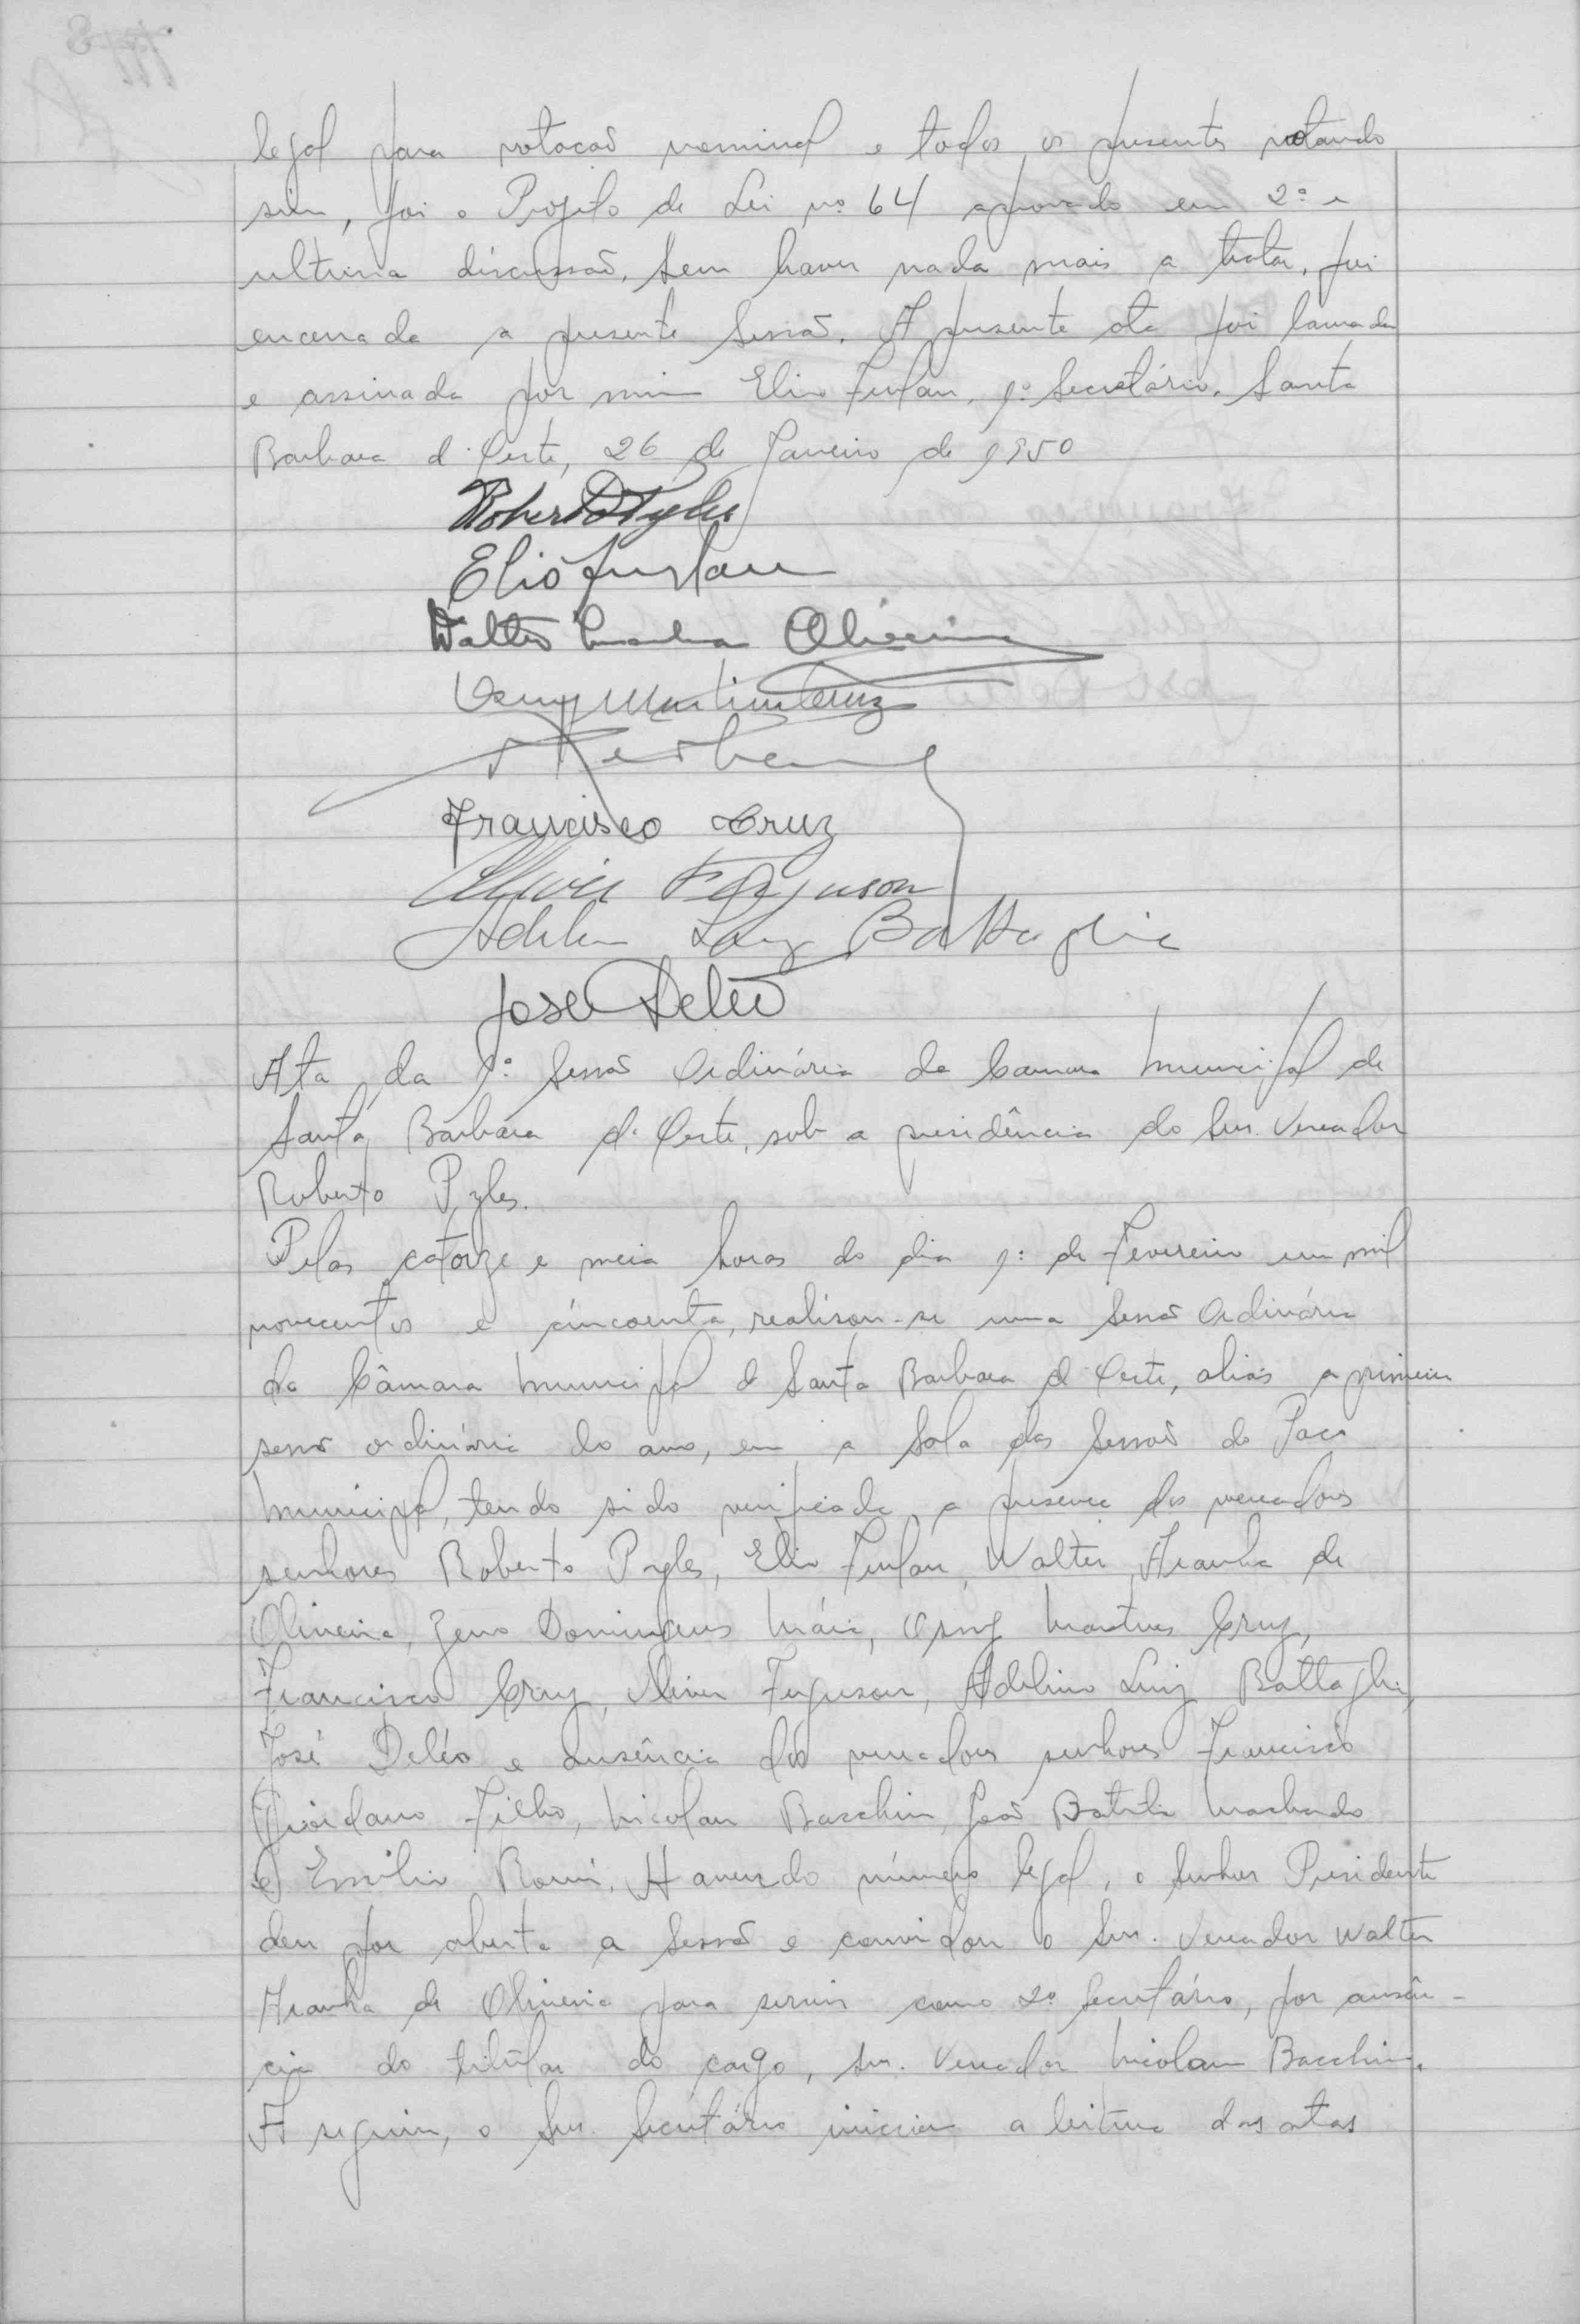 legal para votacaõ nominal e todos os presentes votando
sim, foi o Projeto de Lei nº 64 aprovado em 2ª e
ultima discussaõ. Sem haver nada mais a tratar, foi
encerrada a presente Sessaõ. A presente ata foi lavrada
e assinada por mim Elio Furlan, 1º Secretário. Santa
Barbara d'Oeste, 26 de Janeiro de 1950
Roberto Pyles
Elio Furlan
Walter Aranha Oliveira
Osny Martins Cruz
Francisco Cruz
Oliver Ferguson
Adelino Luiz Battaglia
José Deléo
Ata da 1ª Sessaõ Ordinária da Camara Municipal de
Santa Barbara d'Oeste, sob a presidência do Snr. Vereador
Roberto Pyles.
Pelas catorze e meia horas do dia 1º de Fevereiro em mil
novecentos e cincoenta, realisou-se uma Sessaõ Ordinária
da Câmara Municipal d Santa Barbara d'Oeste, aliás a primeira
sessaõ ordinária do ano, em a Sala das Sessoẽs do Paço
Municipal, tendo sido verificada a presença dos vereadores
senhores Roberto Pyles, Elio Furlan, Walter Aranha de
Oliveira, Zeno Domingues Maia, Osny Martins Cruz,
Francisco Cruz, Oliver Ferguson, Adelino Luiz Battaglia,
José Deléo e ausência dos vereadores senhores Francisco
Giordano Filho, Nicolau Bacchin, Joaõ Batista Machado
e Emilio Romi. Havendo número legal, o Senhor Presidente
deu por aberta a Sessaõ e convidou o Snr. Vereador Walter
Aranha de Oliveira para servir como 2º Secretário, por ausên-
cia do titular do cargo, Snr. Vereador Nicolau Bacchin.
A seguir, o Snr. Secretário iniciou a leitura das atas